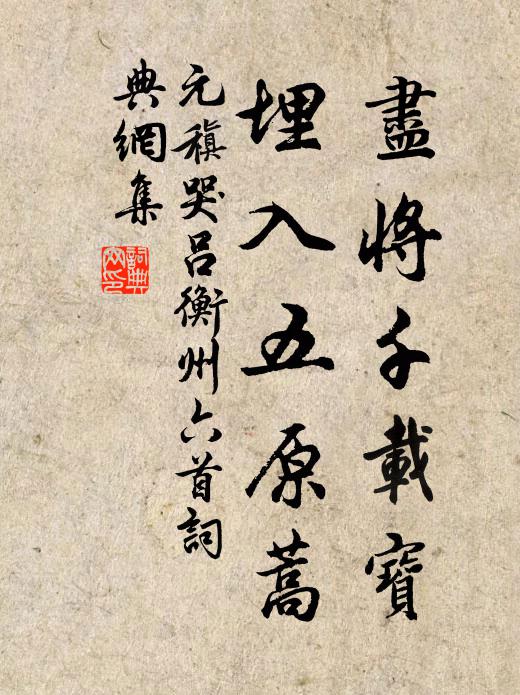 盡將千載寶
埋入五原蒿
元稹哭呂衡州六首詞
典網集
詞典網印